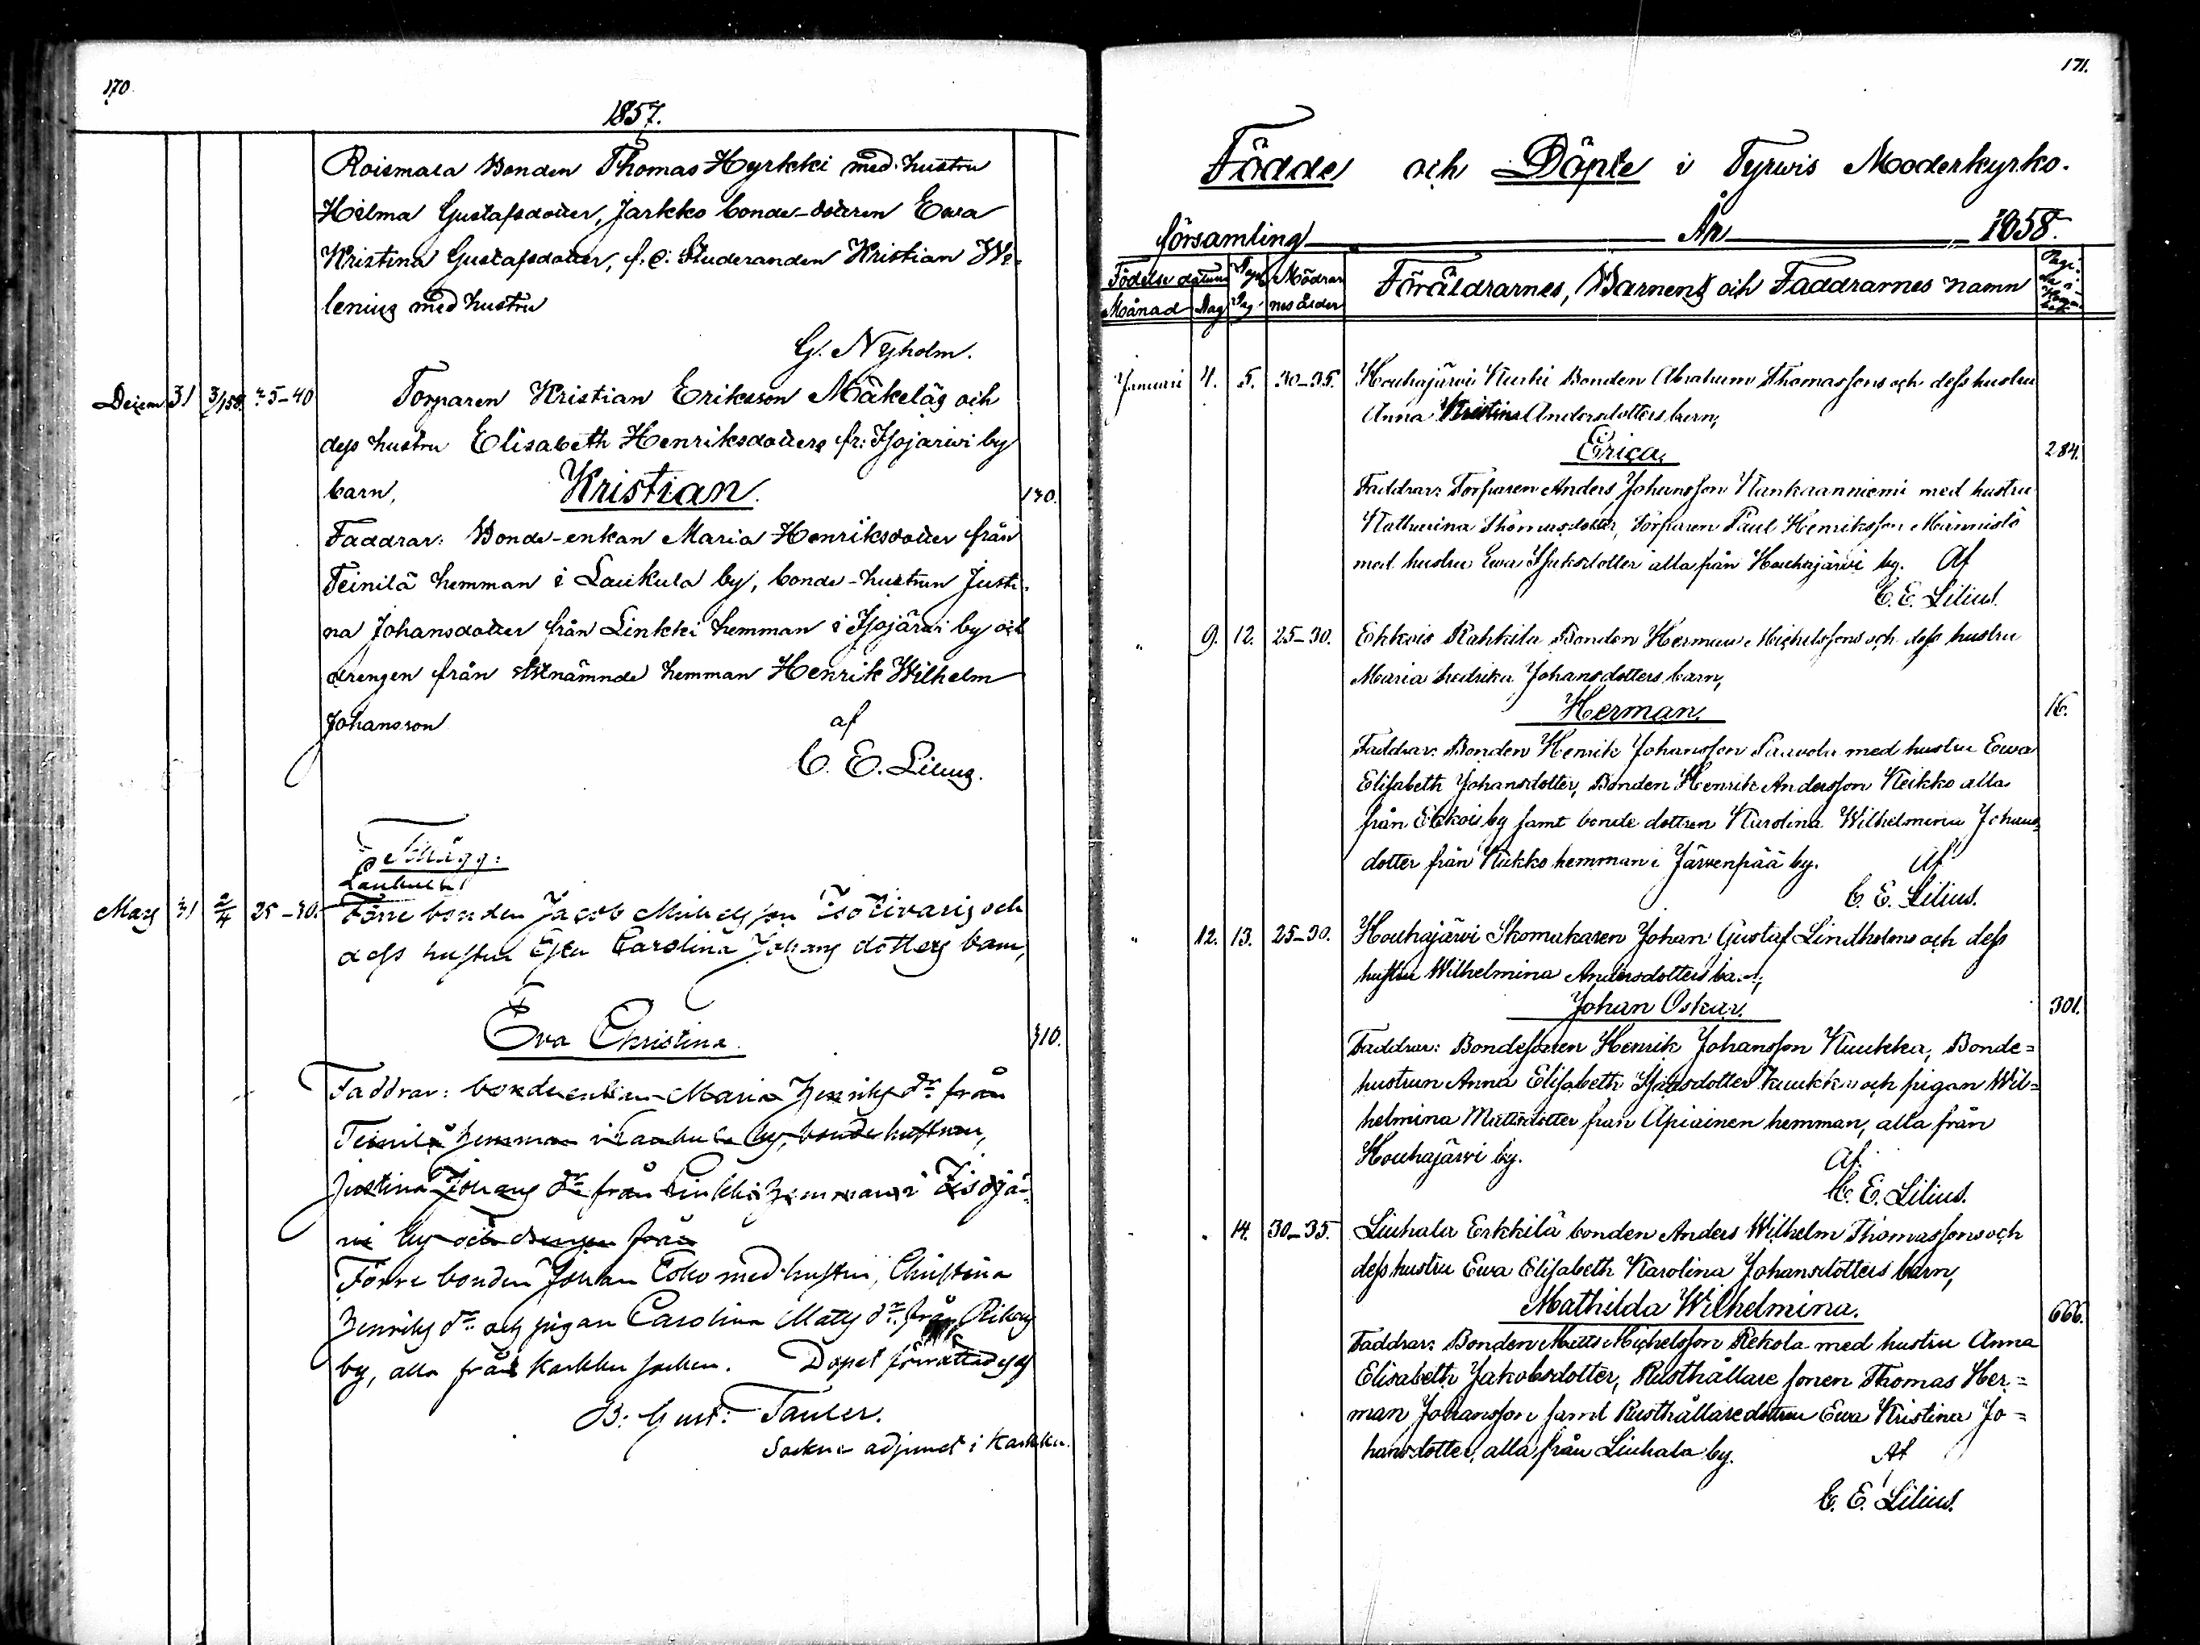 170.
1857.
Roismala Bonden Thomas Hyrkki med hustru
Hilma Gustafsdotter, Jarkko bonde-dotteren Ewa
Kristina Gustafsdotter, f. d. Studeranden Kristian We-
lenius med hustru
G. Nyholm.
Decem 31 3/1 58. 25-40 Torparen Kristian Eriksson Mäkeläs och
dess hustru Elisabeth Henriksdotters fr: Isojärwi by
barn, Kristian. 130.
Faddrar: Bonde-enkan Maria Henriksdotter från
Teinilä hemman i Laukula by, bonde-hustrun Justi-
na Johansdotter från Linkki hemman i Isojärwi by och
drengen från sistnämnde hemman Henrik Wilhelm
Johansson af
C. E. Lilius.
Tillägg:
Laukula
Mars 31 2/4 25-30. Förre bonden Jacob Michelsson Isotivaris och
dess hustru Carolina Johans dotters barn,
Eva Christina. 310.
Faddrar: bondeenkan Maria Henriks dr från
Teinilä hemman i Laukula by, bondehustrun,
Justina Johans dr från Linkki hemman i Isojär-
vi by och drengen från
Förre bonden Johan med hustru, Christina
Henriks dr och pigan Carolina Matts dr från
by, alla från Karkku socken. Dopet förrättades af
B: Gust: Tauler.
Socken adjunct i Karkku.
171.
Födde och Döpte i Tyrwis Moderkyrko-
församling År 1858.
Födelse datum Döpel Mödrar Föräldrarnes, Barnens och Faddrarnes namn Pagi-
Månad Dag Dag nes ålder
Januari 4. 5. 30-35. Houhajärwi Kurki Bonden Abraham Thomassons och dess hustru
Anna Kristina Andersdotters barn,
Erica. 284.
Faddrar: Torparen Anders Johansson Kankaanniemi med hustru
Katharina Thomasdotter, Torparen Paul Henriksson Männistö
med hustru Ewa Isaksdotter alla från Houhajärvi by. Af
C. E. Lilius.
" 9. 12. 25-30. Ekkois Rahkila Bonden Herman Michelssons och dess hustru
Maria Fredrika Johansdotters barn,
Herman. 16.
Faddrar: Bonden Henrik Johansson Paavola med hustru Ewa
Elisabeth Johansdotter, Bonden Henrik Andersson Keikko alla
från Ekkois by samt bonde dottren Karolina Wilhelmina Johans
dotter från Kukko hemman i Järvenpää by. Af
C. E. Lilius.
" 12. 13. 25-30. Houhajärwi Skomakaren Johan Gustaf Lindholms och dess
hustru Wilhelmina Andersdotters barn,
Johan Oskar. 301.
Faddrar: Bondesonen Henrik Johansson Kuukka, Bonde=
hustrun Anna Elisabeth Isaksdotter Kuukka och pigan Wil=
helmina Mattsdotter från Apiainen hemman, alla från
Houhajärwi by. Af
C. E. Lilius.
" " 14. 30-35. Liuhala Erkkilä bonden Anders Wilhelm Thomassons och
dess hustru Ewa Elisabeth Karolina Johansdotters barn,
Mathilda Wilhelmina. 666.
Faddrar: Bonden Matts Michelsson Rekola med hustru Anna
Elisabeth Jakobsdotter, Rusthållare sonen Thomas Her=
man Johansson samt Rusthållaredottren Ewa Kristina Jo=
hansdotter, alla från Liuhala by. Af
C. E. Lilius.